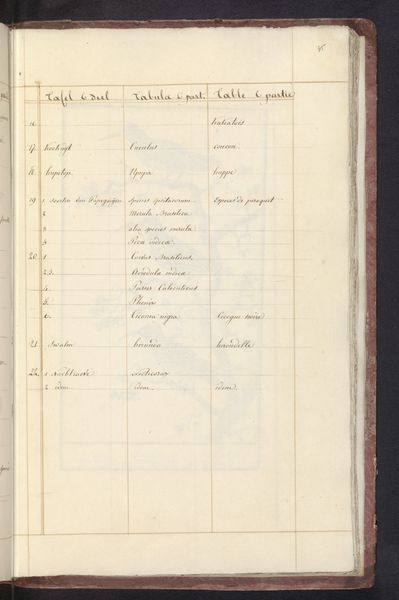 Tafel 6 Deel Tabula 6 part. Table 6 partie
16
17. Koekuyt Cuculus coucou
18. hupetop. Upupa huppe
19 1 soorten van Papegaijen species psittacorum Especes de paroquet
2 Merula Brasilica
3 alia species merula
4 Pica indica
20. 1 Corvus Brasiliensis
2.3. Acredula indica
4. Passer
5. Phenix
6. Ciconia nigra Cicogne noire
21 Swalm hirundo hirondelle
22. 1 Nachtraefe Nicticorax
2 idem idem idem